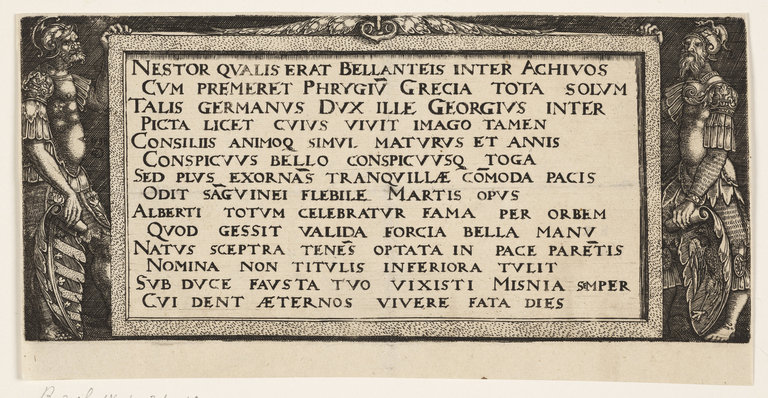 NESTOR QVALIS ERAT BELLANTEIS INTER ACHIVOS
CVM PREMERET PHRYGIV̄ GRECIA TOTA SOLVM
TALIS GERMANVS DVX ILLE GEORGIVS INTER
PICTA LICET CVIVS VIVIT IMAGO TAMEN
CONSILIIS ANIMOQ SIMVL MATVRVS ET ANNIS
CONSPICVVS BELLO CONSPICVVSQ TOGA
SED PLVS EXORNAS̄ TRANQVILLÆ CŌMODA PACIS
ODIT SĀGVINEI FLEBILE MARTIS OPVS
ALBERTI TOTVM CELEBRATVR FAMA PER ORBEM
QVOD GESSIT VALIDA FORCIA BELLA MANV
NATVS SCEPTRA TENES̄ OPTATA IN PACE PARĒTIS
NOMINA NON TITVLIS INFERIORA TVLIT
SVB DVCE FAVSTA TVO VIXISTI MISNIA SEMPER
CVI DENT ÆTERNOS VIVERE FATA DIES